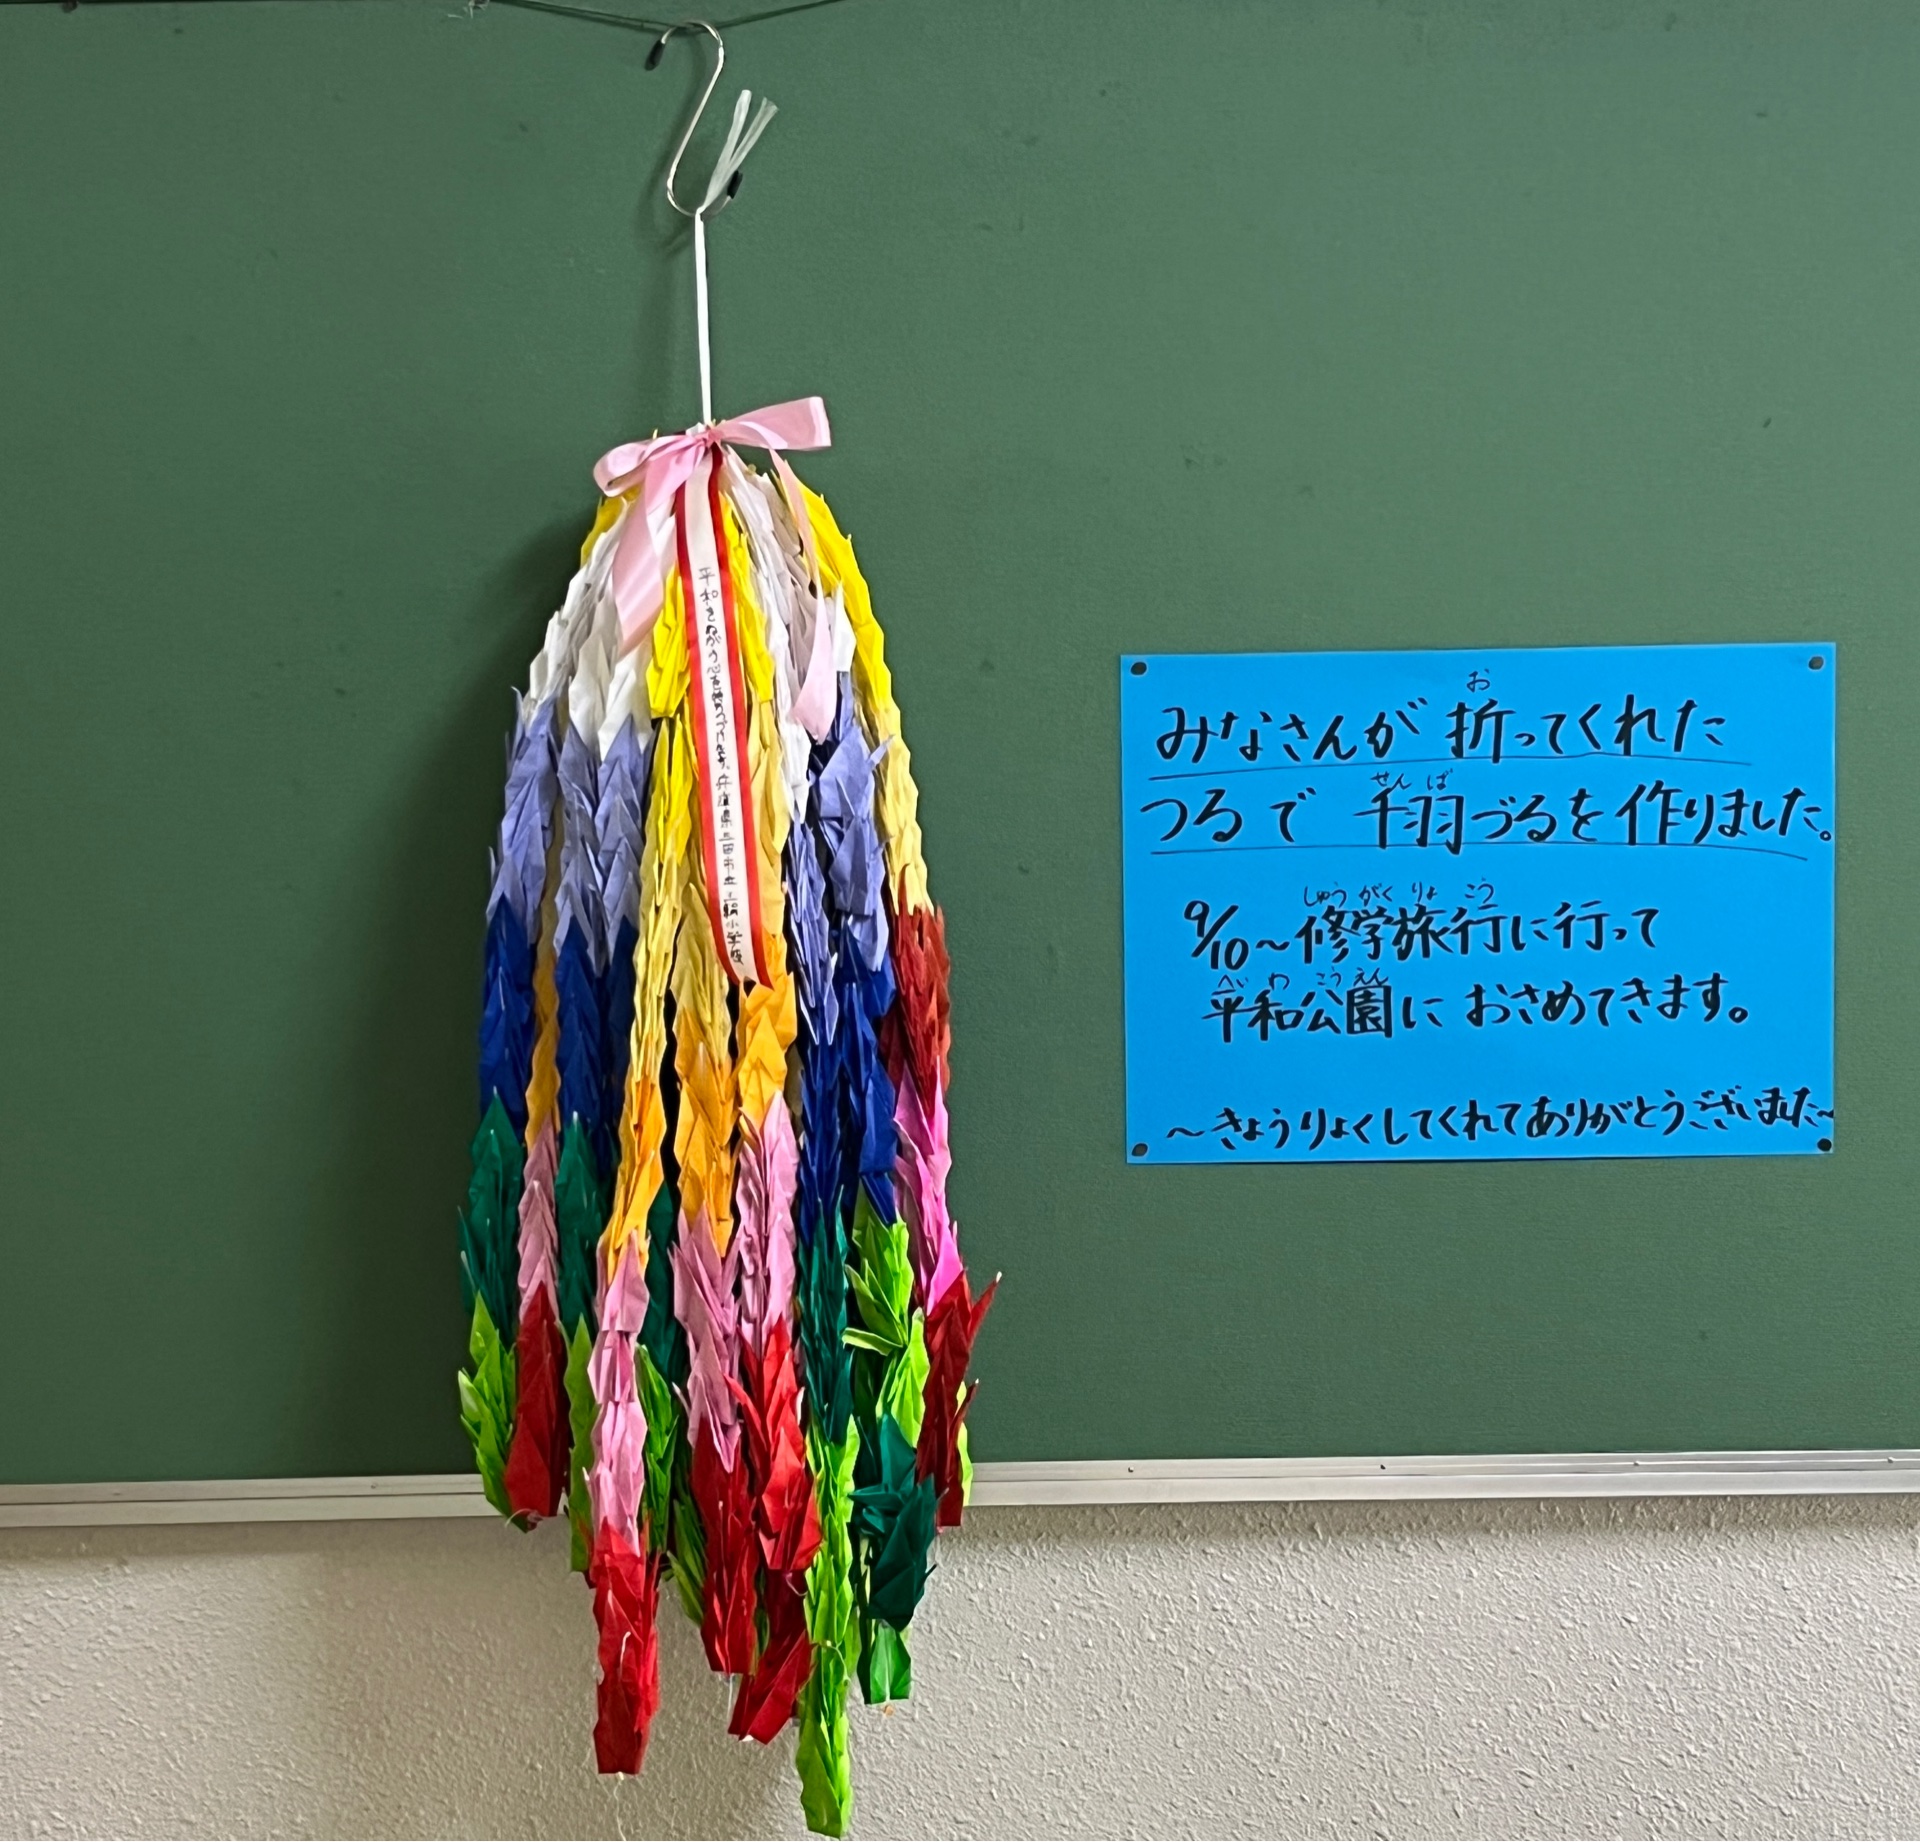 平和をねがう心を
兵庫県三田市立三輪小学校
お
みなさんが 折ってくれた
せん ば
つるで 千羽づるを作りました。
しゅう がく りょ こう
9/10～修学旅行に行って
へい わ こう えん
平和公園に おさめてきます。
～きょうりょくしてくれてありがとうございました～